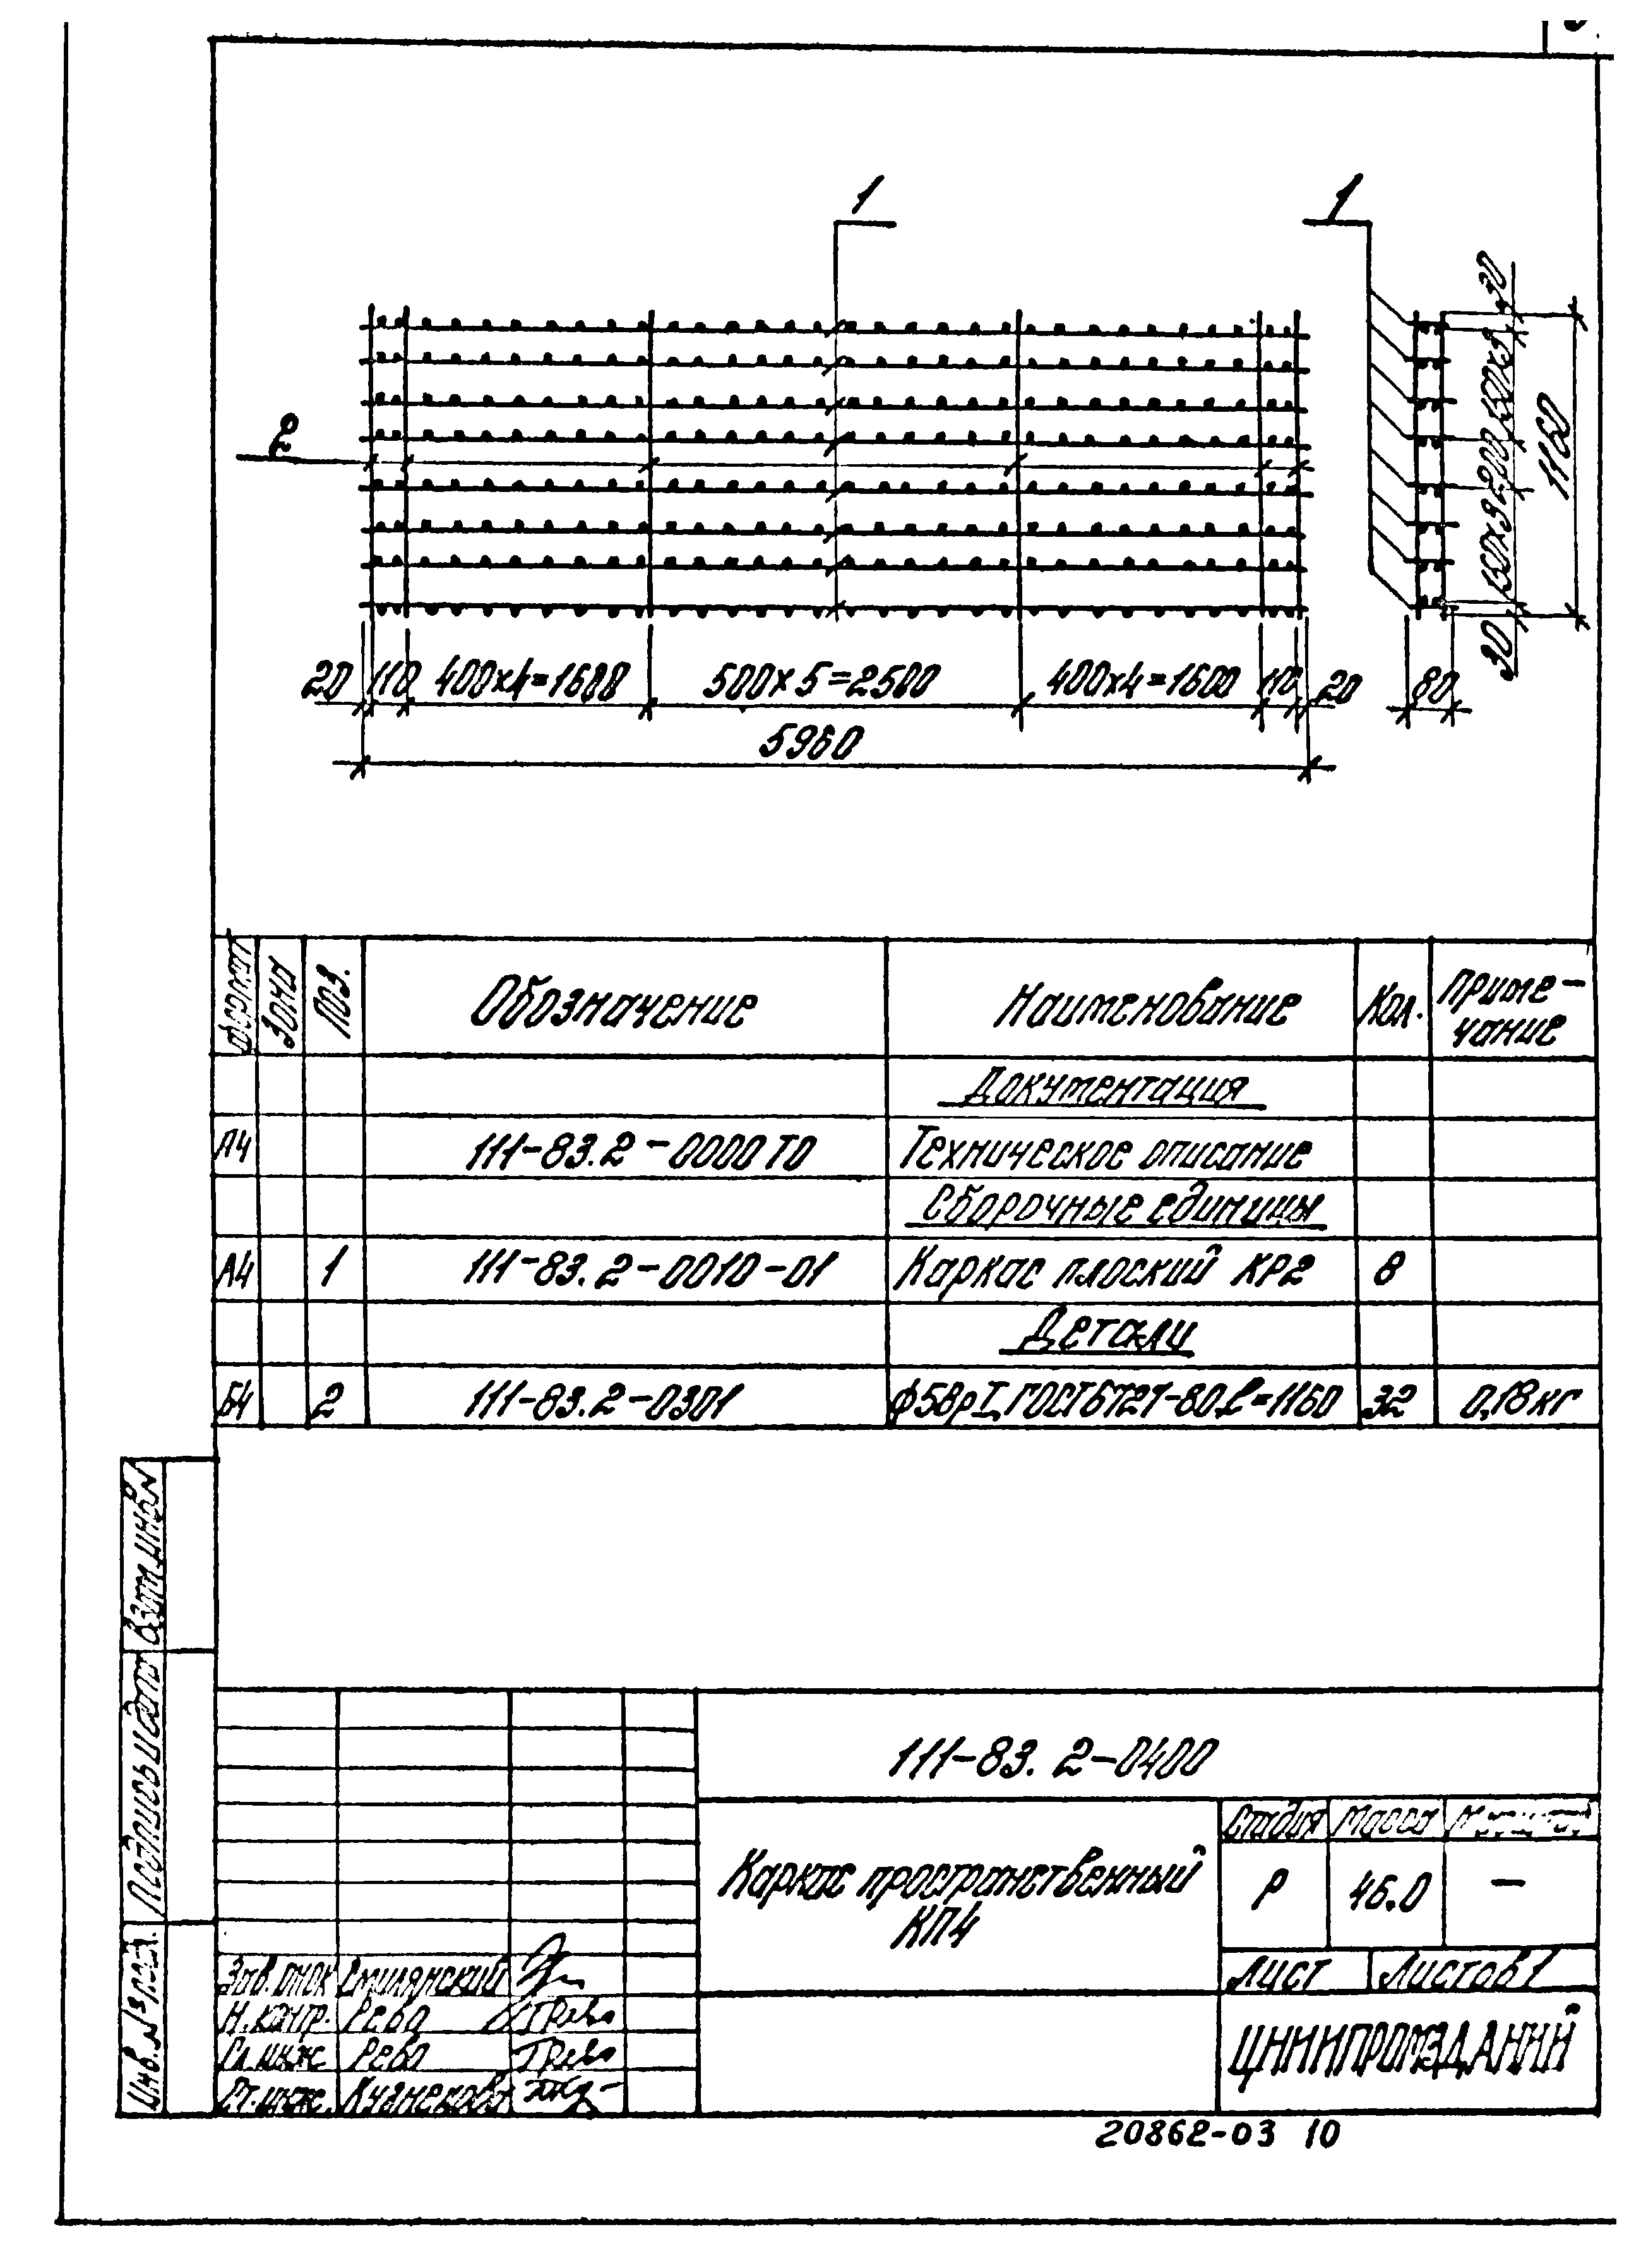 1 1
2
30
150x3
200
150x3
30
1160
20 110 400x4=1600 500x5=2500 400x4=1600 110 20 80
5960
Формат Зона Поз. Обозначение Наименование Кол. Приме-
чание
Документация
А4 111-83.2-0000 ТО Техническое описание
Сборочные единицы
А4 1 111-83.2-0010-01 Каркас плоский КР2 8
Детали
Б4 2 111-83.2-0301 ф5ВрI, ГОСТ6727-80, ℓ=1160 32 0,18кг
Взам. инв. №
Подпись и дата
Инв. № подл.
111-83. 2-0400
Каркас пространственный
КП4
Стадия Масса
Р 46.0 —
Лист Листов 1
ЦНИИПРОМЗДАНИЙ
Смилянский
Н. контр. Рева
Гл. инж. Рева
Ст. инж. Кузнецова
20862-03 10